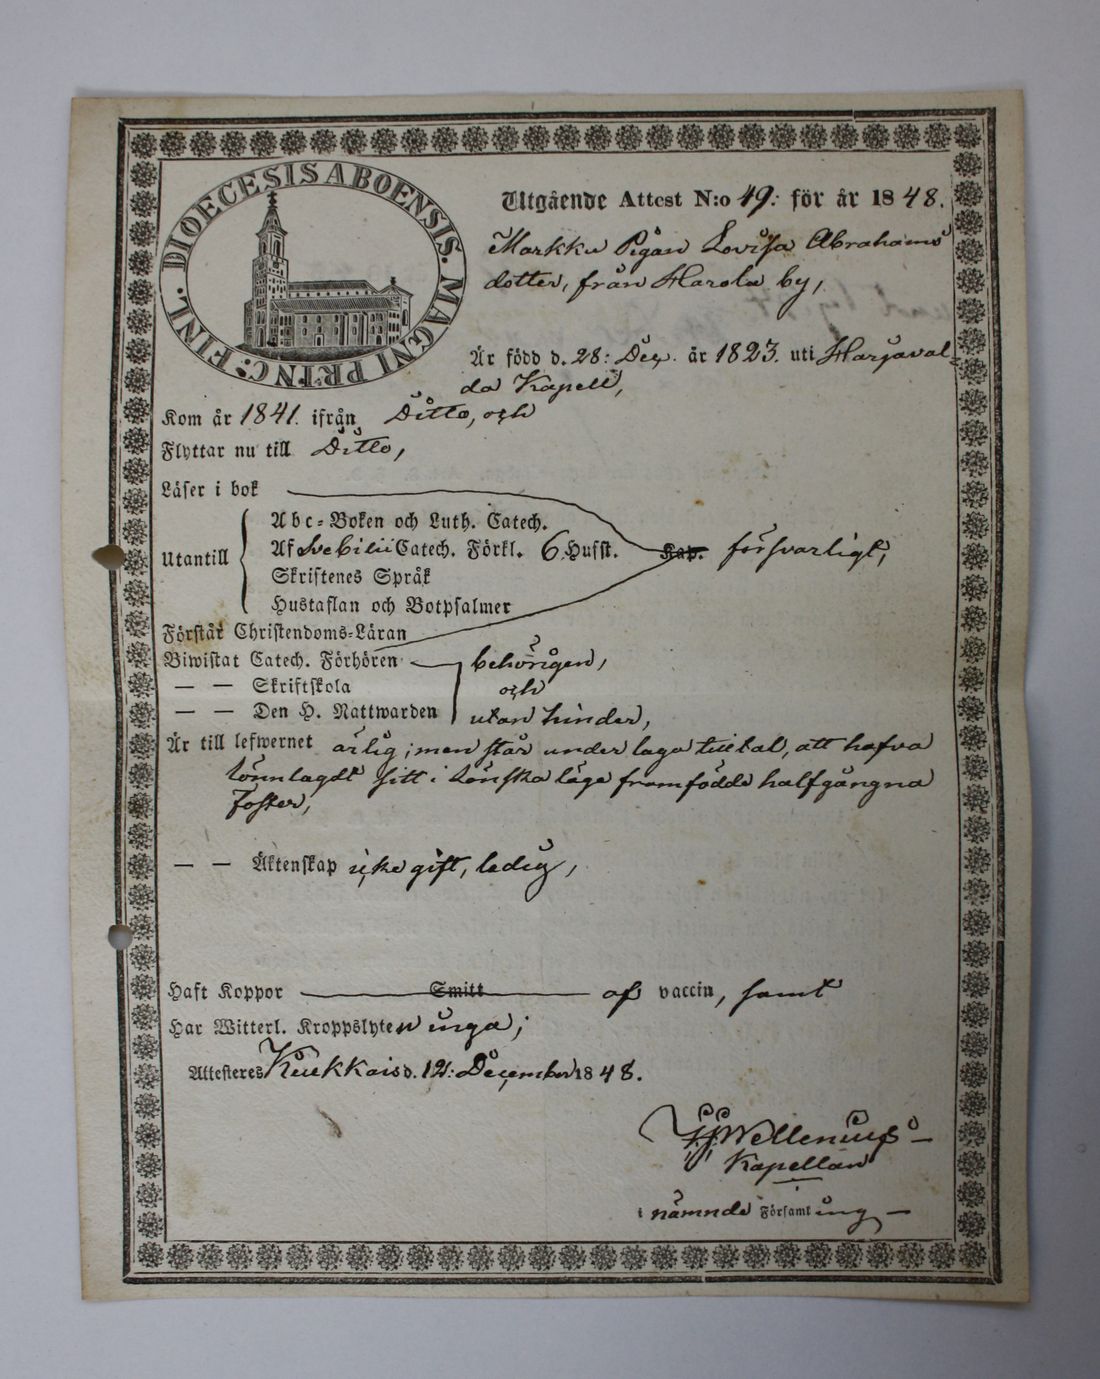 DIOECESIS ABOENSIS. MAGNI PRINC: FINL.
Utgående Attest N:o 49: för år 1848.
Markku Pigan Lovisa Abrahams
dotter, från Harola by,
Är född d. 28: Dec. år 1823. uti Harjaval-
da Kapell,
Kom år 1841. ifrån Ditto, och
Flyttar nu till Ditto,
Läser i bok
Utantill
Abc-Boken och Luth. Catech.
Af Svebilii Catech. Förkl. 6 Husst. Kap. försvarligt,
Skriftenes Språk
Hustaflan och Botpsalmer
Förstår Christendoms-Läran
Biwistat Catech. Förhören behörigen,
— — Skriftskola och
— — Den H. Nattwarden utan hinder,
Är till lefwernet ärlig; men står under laga tilltal, att hafva
lönnlagdt sitt i lönska läge framfödde halfgångna
foster,
— — Äktenskap icke gift, ledig,
Haft Koppor Smitt af vaccin, samt
Har Witterl. Kroppslyten inga;
Attesteras Keukkais d. 12: December 1848.
Wellenius
Kapellan
i nämnde Församling